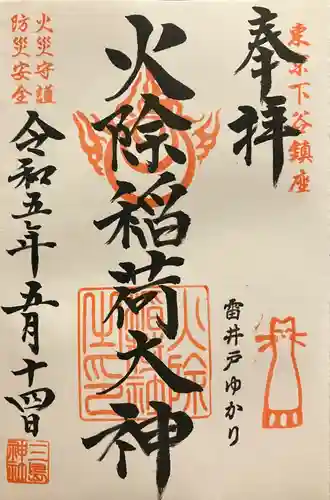 東京下谷鎮座
奉拝
雷井戸ゆかり
火除稲荷大神
火災守護
防災安全
令和五年五月十四日
三島神社